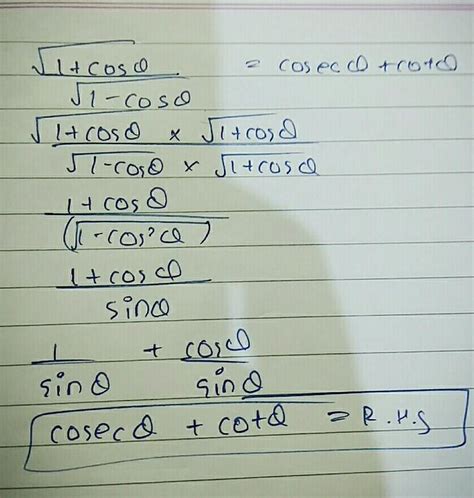 √1+cosθ / √1-cosθ = cosecθ + cotθ
√1+cosθ × √1+cosθ / √1-cosθ × √1+cosθ
1+cosθ / (√1-cos²θ)
1+cosθ / sinθ
1 / sinθ + cosθ / sinθ
cosecθ + cotθ = R.H.S